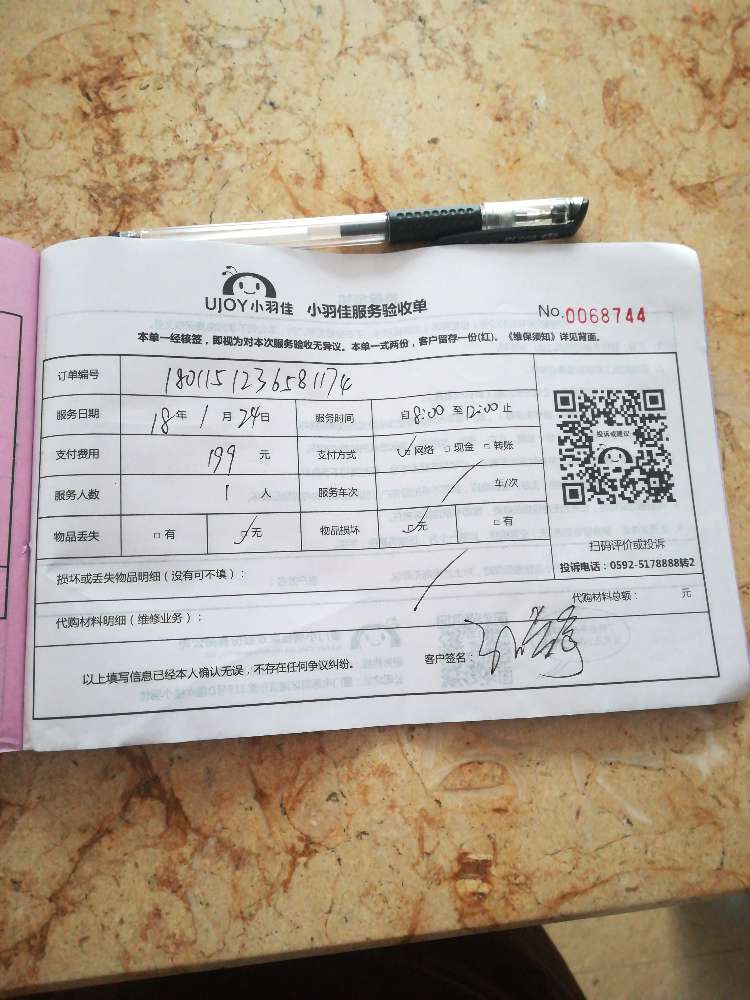 UJOY小羽佳 小羽佳服务验收单 No.0068744
本单一经核签，即视为对本次服务验收无异议。本单一式两份，客户留存一份(红)。《维保须知》详见背面。
订单编号 1801151236581174
服务日期 18年1月24日 服务时间 自8:00至12:00止
支付费用 199元 支付方式 ☑网络 □现金 □转账
服务人数 1人 服务车次 / 车/次
物品丢失 □有 ☑无 物品损坏 ☑无 □有
投诉或建议
扫码评价或投诉
投诉电话：0592-5178888转2
损坏或丢失物品明细（没有可不填）： /
代购材料明细（维修业务）： 代购材料总额： 元
以上填写信息已经本人确认无误，不存在任何争议纠纷。 客户签名：